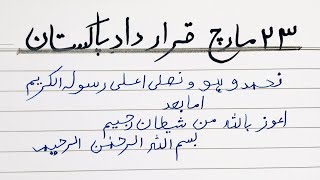 ۲۳ مارچ قرار داد پاکستان
نحمد و ہو و نصلی اعلی رسولہ الکریم
اما بعد
اعوز باللہ من شیطان رجیم
بسم اللہ الرحمٰن الرحیم